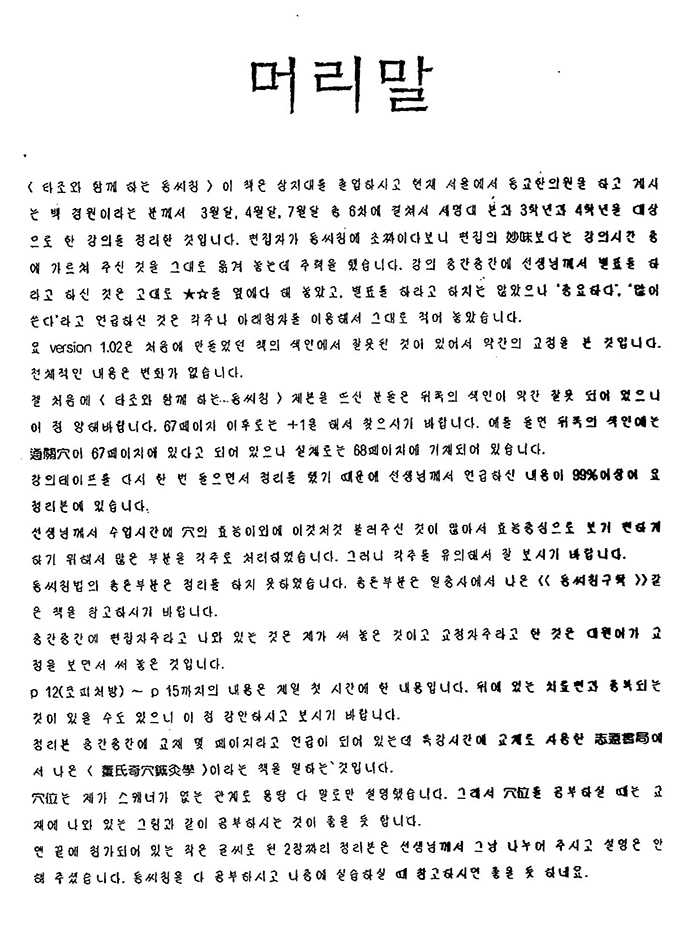 머리말
< 타조와 함께 하는 동씨침 > 이 책은 상지대를 졸업하시고 현재 서울에서 동교한의원을 하고 계시
는 백 경원이라는 분께서 3월달, 4월달, 7월달 총 6차에 걸쳐서 세명대 본과 3학년과 4학년을 대상
으로 한 강의를 정리한 것입니다. 편집자가 동씨침에 초짜이다보니 편집의 妙味보다는 강의시간 중
에 가르쳐 주신 것을 그대로 옮겨 놓는데 주력을 했습니다. 강의 중간중간에 선생님께서 별표를 하
라고 하신 것은 고대로 ★☆를 옆에다 해 놓았고, 별표를 하라고 하지는 않았으나 '중요하다', '많이
쓴다'라고 언급하신 것은 각주나 아래첨자를 이용해서 그대로 적어 놓았습니다.
요 version 1.02은 처음에 만들었던 책의 색인에서 잘못된 것이 있어서 약간의 교정을 본 것입니다.
전체적인 내용은 변화가 없습니다.
젤 처음에 < 타조와 함께 하는 동씨침 > 제본을 뜨신 분들은 뒤쪽의 색인이 약간 잘못 되어 있으니
이 점 양해바랍니다. 67페이지 이후로는 +1을 해서 찾으시기 바랍니다. 예를 들면 뒤쪽의 색인에는
通關穴이 67페이지에 있다고 되어 있으나 실제로는 68페이지에 기재되어 있습니다.
강의테이프를 다시 한 번 들으면서 정리를 했기 때문에 선생님께서 언급하신 내용이 99%이상이 요
정리본에 있습니다.
선생님께서 수업시간에 穴의 효능이외에 이것저것 불러주신 것이 많아서 효능중심으로 보기 편하게
하기 위해서 많은 부분을 각주로 처리하였습니다. 그러니 각주를 유의해서 잘 보시기 바랍니다.
동씨침법의 총론부분은 정리를 하지 못하였습니다. 총론부분은 일중사에서 나온 << 동씨침구학 >>같
은 책을 참고하시기 바랍니다.
중간중간에 편집자주라고 나와 있는 것은 제가 써 놓은 것이고 교정자주라고 한 것은 대원이가 교
정을 보면서 써 놓은 것입니다.
p 12(초피처방) ~ p 15까지의 내용은 제일 첫 시간에 한 내용입니다. 뒤에 있는 치료편과 중복되는
것이 있을 수도 있으니 이 점 감안하시고 보시기 바랍니다.
정리본 중간중간에 교재 몇 페이지라고 언급이 되어 있는데 특강시간에 교재로 사용한 志遠書局에
서 나온 < 董氏奇穴鍼灸學 >이라는 책을 말하는 것입니다.
穴位는 제가 스캐너가 없는 관계로 몽땅 다 말로만 설명했습니다. 그래서 穴位를 공부하실 때는 교
재에 나와 있는 그림과 같이 공부하시는 것이 좋을 듯 합니다.
맨 끝에 첨가되어 있는 작은 글씨로 된 2장짜리 정리본은 선생님께서 그냥 나누어 주시고 설명은 안
해 주셨습니다. 동씨침을 다 공부하시고 나중에 실습하실 때 참고하시면 좋을 듯 하네요.